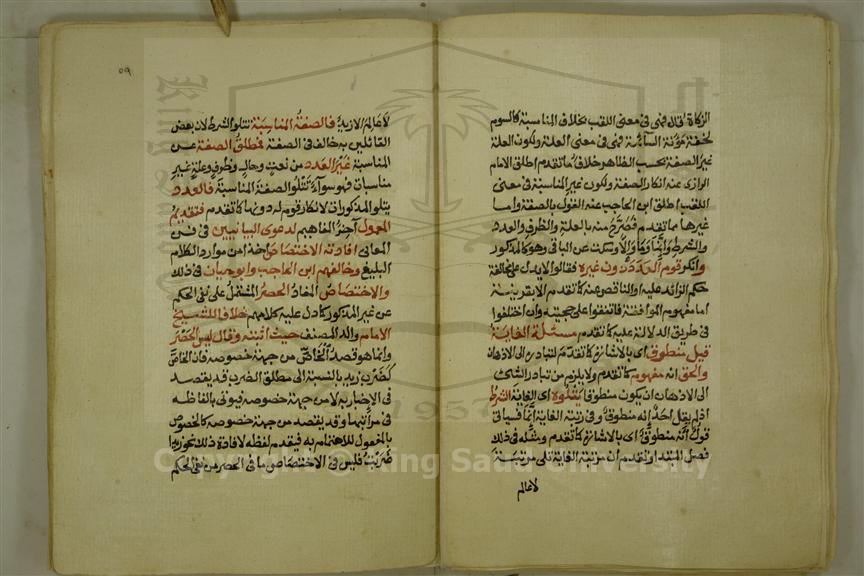 الزكاة الخ فهي في معنى اللقب بخلاف المناسبة كالسوم
لخفة مؤنة السائمة فهي في معنى العلة ولكون العلة
غير الصفة بحسب الظاهر خلاف ما تقدم اطلق الامام
الرازي عنه انكار الصفة ولكون غير المناسبة في معنى
اللقب اطلق ابن الحاجب عنه القول بالصفة واما
غيرها مما تقدم فصرح منه بالعلة والظرف والعدد
والشرط وانما وما والا وسكت عن الباقي وهو كالمذكور
وانكر قوم العدد دون غيره فقالوا لا يدل على مخالفة
حكم الزائد عليه او الناقص عنه كما تقدم الا بقرينة
اما مفهوم الموافقة فاتفقوا على حجيته وان اختلفوا
في طريق الدلالة عليه كما تقدم مسئلة الغاية
قيل منطوق اي بالاشارة كما تقدم لتبادره الى الاذهان
والحق انه مفهوم كما تقدم ولا يلزم من تبادر الشئ
الى الاذهان ان يكون منطوقا يتلوه اي الغاية الشرط
اذ لم يقل احد انه منطوق وفي رتبة الغاية انما فسياتي
قول انه منطوق اي بالاشارة كما تقدم ومثله في ذلك
فصل المبتدا وتقدم ان مرتبة الغاية تلي مرتبة
لا عالم
٥٩
لا عالم الا زيد فالصفة المناسبة تتلو الشرط لان بعض
القائلين به خالف في الصفة فمطلق الصفة عن
المناسبة غير العدد من نعت وحال وظرف وعلة غير
مناسبات فهو سواء تتلو الصفة المناسبة فالعدد
يتلو المذكورات لانكار قوم له دونها كما تقدم فتقديم
المعمول آخر المفاهيم لدعوى البيانيين في فن
المعاني افادته الاختصاص اخذا من موارد الكلام
البليغ وخالفهم ابن الحاجب وابو حيان في ذلك
والاختصاص المفاد الحصر المشتمل على نفي الحكم
عن غير المذكور كما دل عليه كلامهم خلافا للشيخ
الامام والد المصنف حيث اثبته وقال ليس الحصر
وانما هو قصد الخاص من جهة خصوصه فان الخاص
كضرب زيد بالنسبة الى مطلق الضرب قد يقصد
في الاخبار به لا من جهة خصوصه فيؤتى بالفاظه
في مراتبها وقد يقصد من جهة خصوصه كالخصوص
بالمفعول للاهتمام به فيقدم لفظه لافادة ذلك نحو زيدا
ضربت فليس في الاختصاص ما في الحصر من نفي الحكم
Copyright © King Saud University
1957